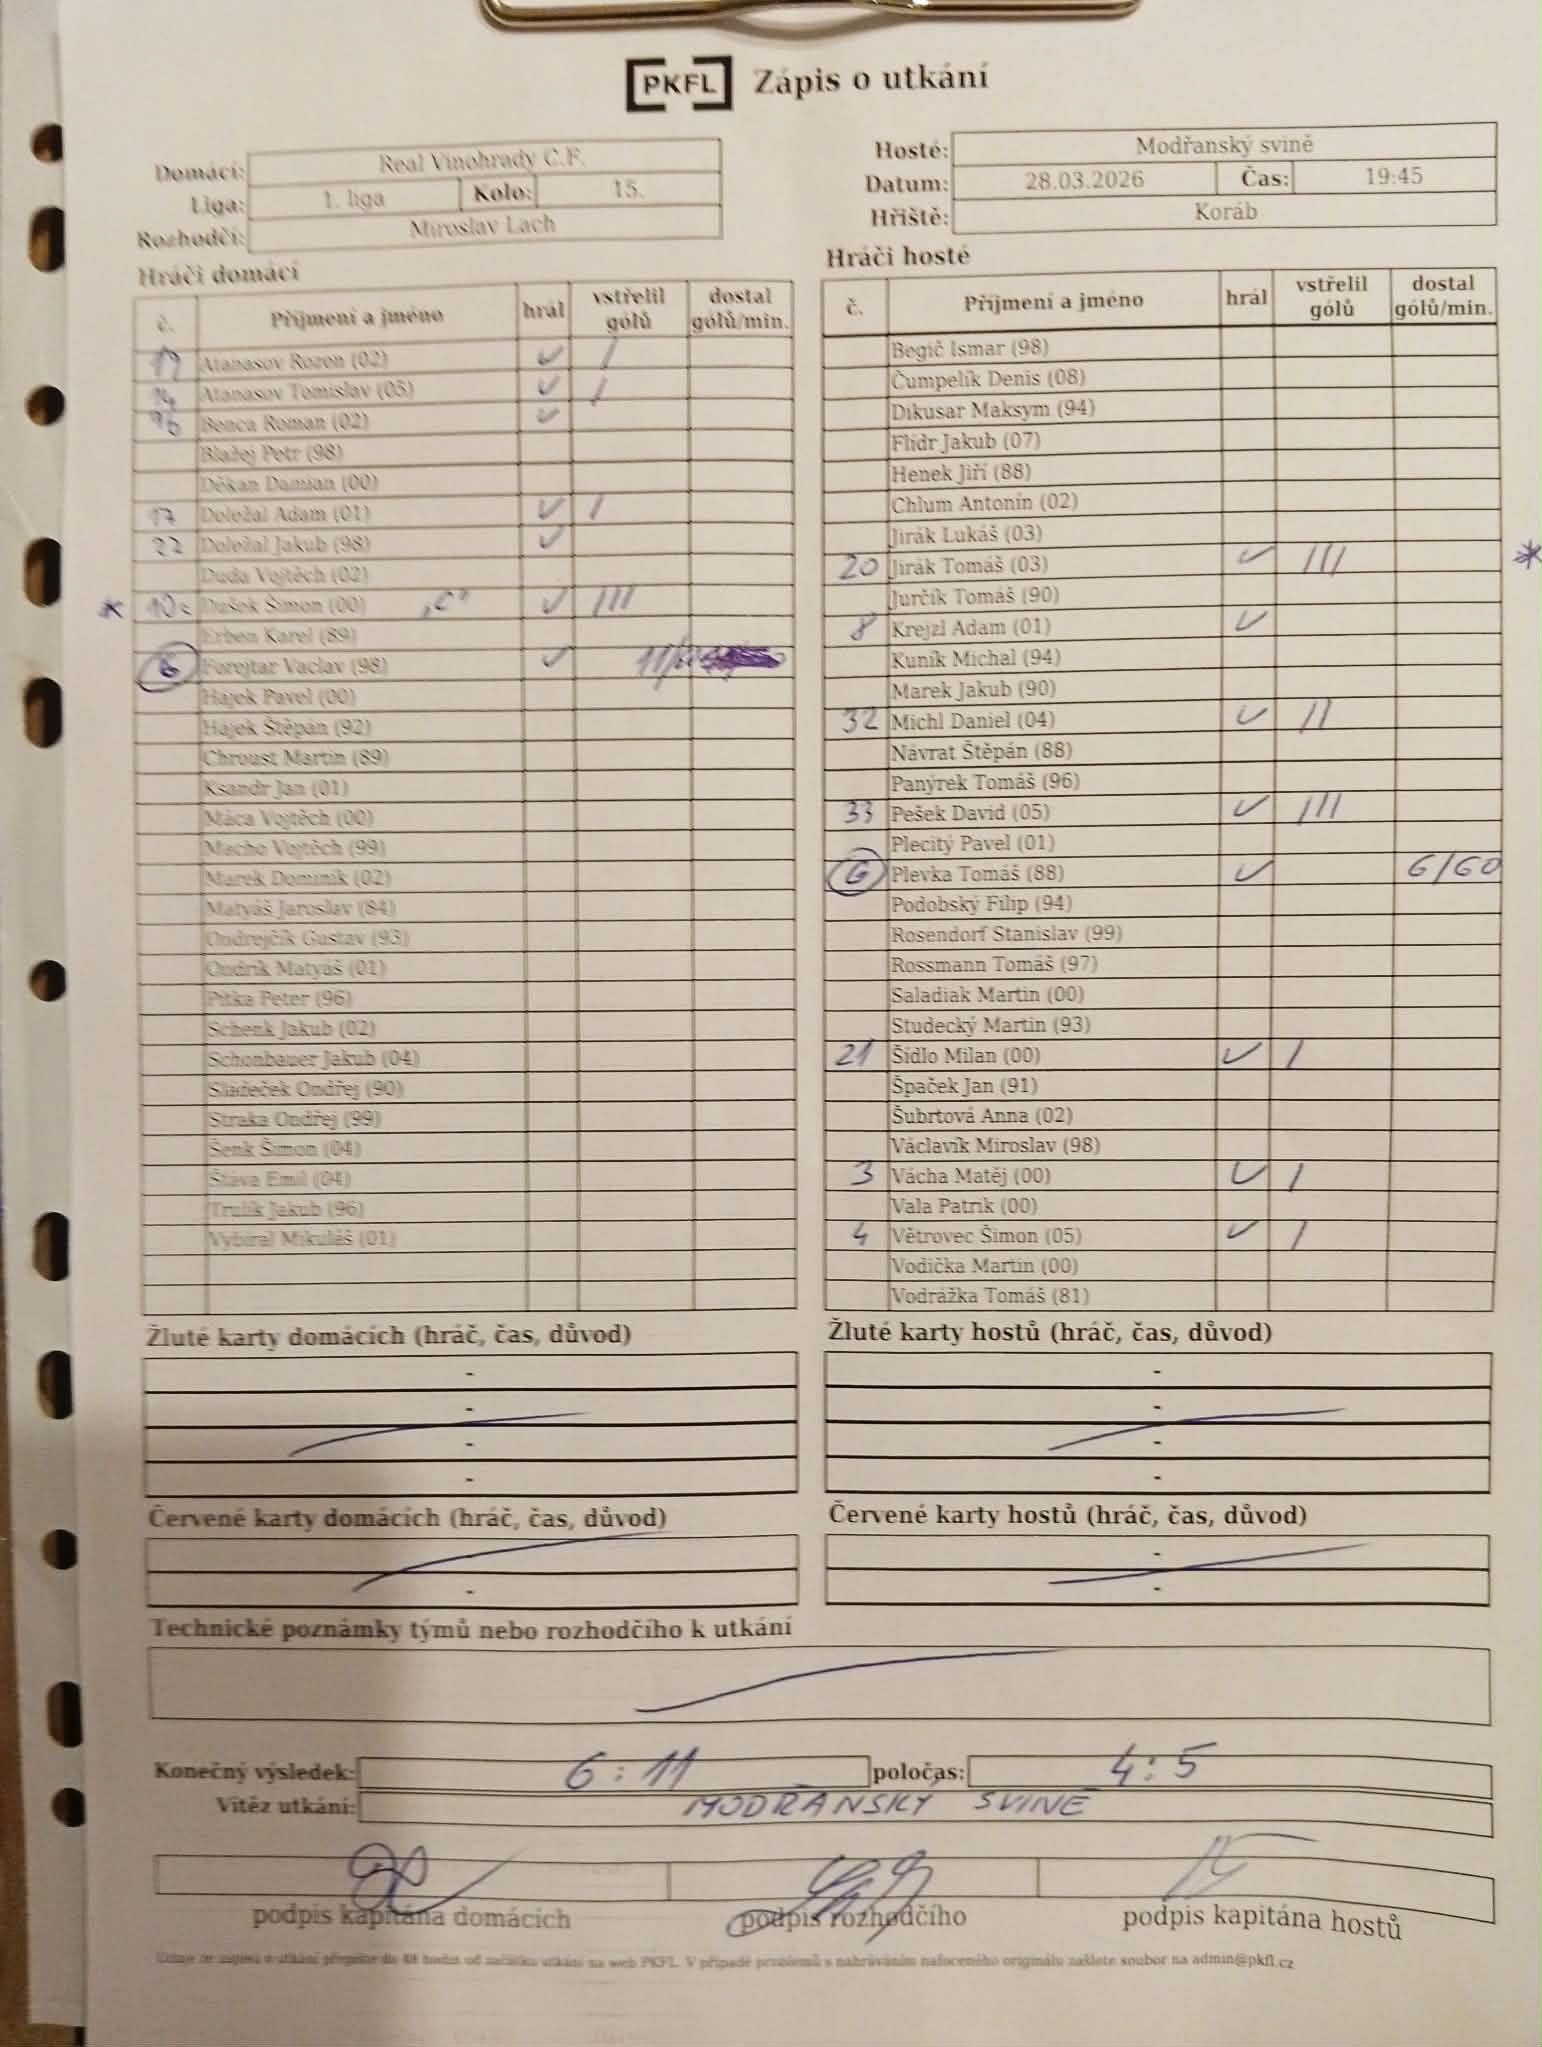 PKFL Zápis o utkání
Domácí: Real Vinohrady C.F.
Liga: 1. liga Kolo: 15.
Rozhodčí: Miroslav Lach
Hosté: Modřanský svině
Datum: 28.03.2026 Čas: 19:45
Hřiště: Koráb
Hráči domácí
č. Příjmení a jméno hrál vstřelil gólů dostal gólů/min.
Atanasov Rozen (02) ✓ /
14 Atanasov Tomislav (05) ✓ /
96 Benca Roman (02) ✓
Blažej Petr (98)
Děkan Damian (00)
17 Doležal Adam (01) ✓ /
22 Doležal Jakub (98) ✓
Duda Vojtěch (02)
* 10 Dušek Šimon (00) „C" ✓ ///
Erben Karel (89)
G Forejtar Václav (98) ✓ 11/
Hájek Pavel (00)
Hájek Štěpán (92)
Chroust Martin (89)
Ksandr Jan (01)
Máca Vojtěch (00)
Macho Vojtěch (99)
Marek Dominik (02)
Matyáš Jaroslav (84)
Ondrejčík Gustav (93)
Ondrik Matyáš (01)
Pitka Peter (96)
Schenk Jakub (02)
Schonbauer Jakub (04)
Sládeček Ondřej (90)
Straka Ondřej (99)
Šenk Šimon (04)
Štáva Emil (04)
Trulík Jakub (96)
Vybíral Mikuláš (01)
Hráči hosté
č. Příjmení a jméno hrál vstřelil gólů dostal gólů/min.
Begič Ismar (98)
Čumpelík Denis (08)
Dikusar Maksym (94)
Flídr Jakub (07)
Henek Jiří (88)
Chlum Antonín (02)
Jirák Lukáš (03)
20 Jirák Tomáš (03) ✓ /// *
Jurčík Tomáš (90)
8 Krejzl Adam (01) ✓
Kuník Michal (94)
Marek Jakub (90)
32 Michl Daniel (04) ✓ //
Návrat Štěpán (88)
Panýrek Tomáš (96)
33 Pešek David (05) ✓ ///
Plecitý Pavel (01)
G Plevka Tomáš (88) ✓ 6/60
Podobský Filip (94)
Rosendorf Stanislav (99)
Rossmann Tomáš (97)
Saladiak Martin (00)
Studecký Martin (93)
21 Šídlo Milan (00) ✓ /
Špaček Jan (91)
Šubrtová Anna (02)
Václavík Miroslav (98)
3 Vácha Matěj (00) ✓ /
Vala Patrik (00)
4 Větrovec Šimon (05) ✓ /
Vodička Martin (00)
Vodrážka Tomáš (81)
Žluté karty domácích (hráč, čas, důvod)
-
-
-
-
Žluté karty hostů (hráč, čas, důvod)
-
-
-
-
Červené karty domácích (hráč, čas, důvod)
-
Červené karty hostů (hráč, čas, důvod)
-
-
Technické poznámky týmů nebo rozhodčího k utkání
Konečný výsledek: 6 : 11 poločas: 4 : 5
Vítěz utkání: MODŘANSKÝ SVINĚ
podpis kapitána domácích podpis rozhodčího podpis kapitána hostů
Údaje ze zápisu o utkání přepište do 48 hodin od začátku utkání na web PKFL. V případě problémů s nahráváním nafoceného originálu zašlete soubor na admin@pkfl.cz